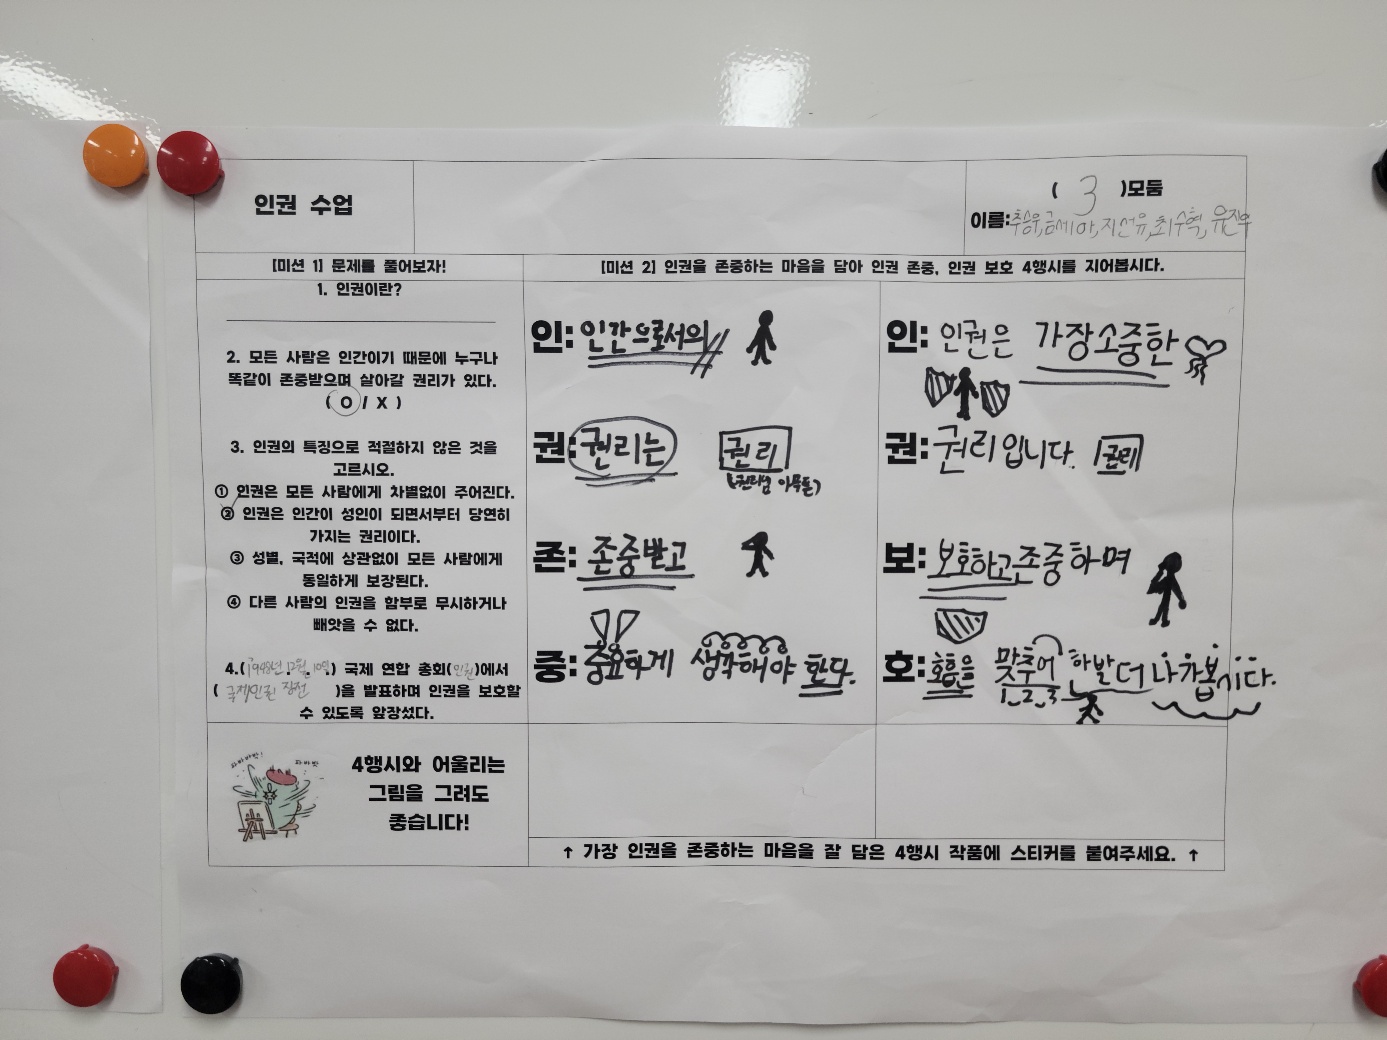 인권 수업
( 3 )모둠
이름: 추승우, 금세아, 지선유, 최수혁, 유진우
[미션 1] 문제를 풀어보자!
1. 인권이란?
2. 모든 사람은 인간이기 때문에 누구나
똑같이 존중받으며 살아갈 권리가 있다.
( O / X )
3. 인권의 특징으로 적절하지 않은 것을
고르시오.
① 인권은 모든 사람에게 차별없이 주어진다.
② 인권은 인간이 성인이 되면서부터 당연히
가지는 권리이다.
③ 성별, 국적에 상관없이 모든 사람에게
동일하게 보장된다.
④ 다른 사람의 인권을 함부로 무시하거나
빼앗을 수 없다.
4.(1948년.12월.10일.) 국제 연합 총회(인권)에서
( 국제인권 장전 )을 발표하며 인권을 보호할
수 있도록 앞장섰다.
[미션 2] 인권을 존중하는 마음을 담아 인권 존중, 인권 보호 4행시를 지어봅시다.
인: 인간으로서의
권: 권리는 권리
존: 존중받고
중: 중요하게 생각해야 한다.
인: 인권은 가장소중한
권: 권리입니다. 권리
보: 보호하고존중하며
호: 호흡을 맞추어 한발 더 나가봅시다.
1 2 3
파바바밧!
파바밧
4행시와 어울리는
그림을 그려도
좋습니다!
↑ 가장 인권을 존중하는 마음을 잘 담은 4행시 작품에 스티커를 붙여주세요. ↑